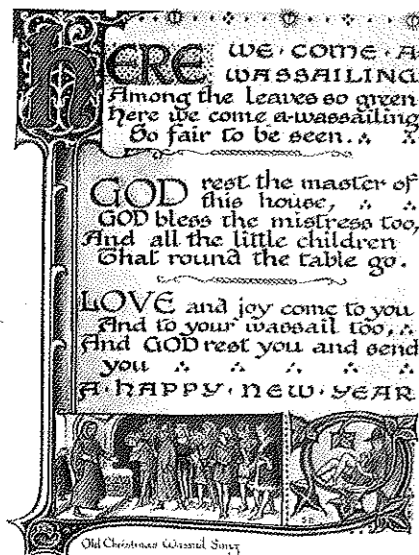 HERE WE·COME·A
WASSAILING
Among the leaves so green
Here we come a-wassailing
So fair to be seen.
GOD rest the master of
this house,
GOD bless the mistress too,
And all the little children
That round the table go.
LOVE and joy come to you
And to your wassail too,
And GOD rest you and send
you
A·HAPPY·NEW·YEAR
Old Christmas Wassail Song